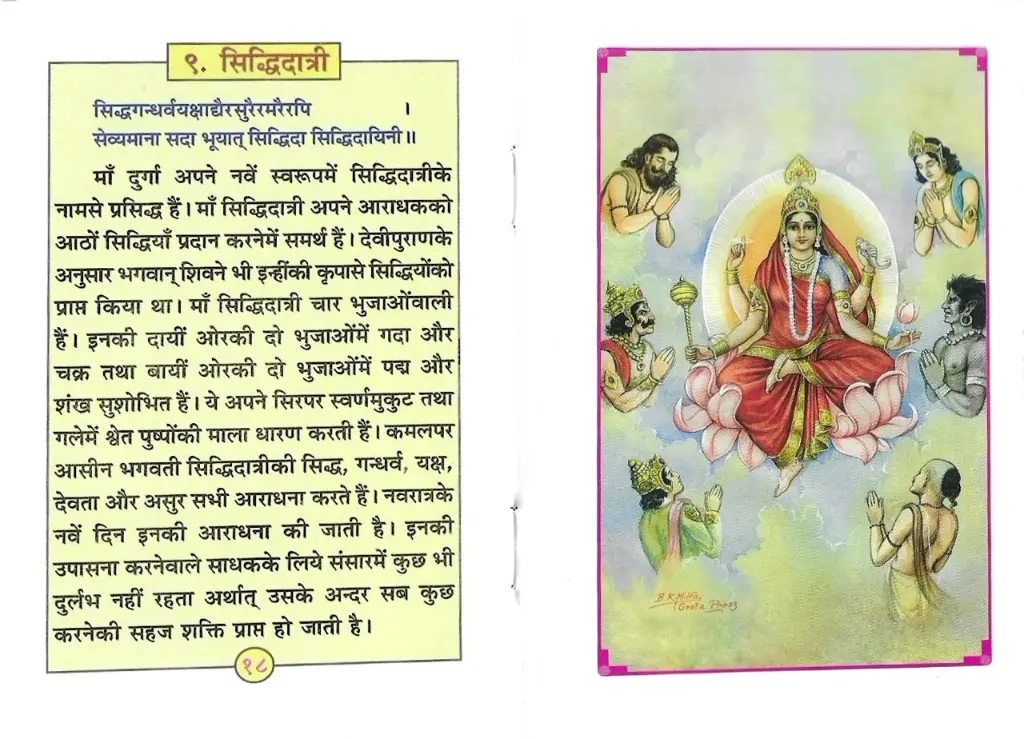 ९. सिद्धिदात्री
सिद्धगन्धर्वयक्षाद्यैरसुरैरमरैरपि ।
सेव्यमाना सदा भूयात् सिद्धिदा सिद्धिदायिनी॥
माँ दुर्गा अपने नवें स्वरूपमें सिद्धिदात्रीके
नामसे प्रसिद्ध हैं। माँ सिद्धिदात्री अपने आराधकको
आठों सिद्धियाँ प्रदान करनेमें समर्थ हैं। देवीपुराणके
अनुसार भगवान् शिवने भी इन्हींकी कृपासे सिद्धियोंको
प्राप्त किया था। माँ सिद्धिदात्री चार भुजाओंवाली
हैं। इनकी दायीं ओरकी दो भुजाओंमें गदा और
चक्र तथा बायीं ओरकी दो भुजाओंमें पद्म और
शंख सुशोभित हैं। ये अपने सिरपर स्वर्णमुकुट तथा
गलेमें श्वेत पुष्पोंकी माला धारण करती हैं। कमलपर
आसीन भगवती सिद्धिदात्रीकी सिद्ध, गन्धर्व, यक्ष,
देवता और असुर सभी आराधना करते हैं। नवरात्रके
नवें दिन इनकी आराधना की जाती है। इनकी
उपासना करनेवाले साधकके लिये संसारमें कुछ भी
दुर्लभ नहीं रहता अर्थात् उसके अन्दर सब कुछ
करनेकी सहज शक्ति प्राप्त हो जाती है।
१८
B.K.Mitra
Geeta Press